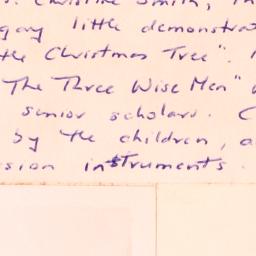 Christine Smith,
gay little demonstra
the Christmas Tree".
The Three Wise Men"
senior scholars. C
by the children, a
sion instruments.